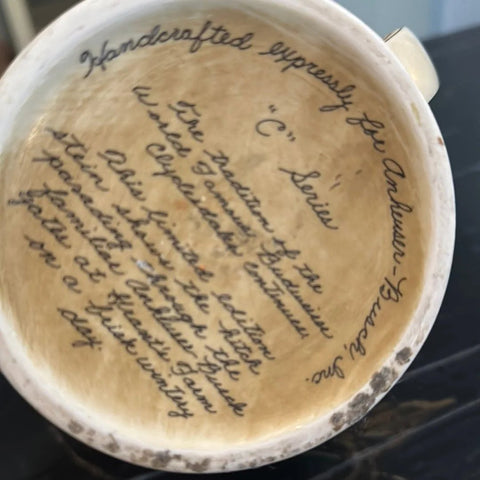 Handcrafted expressly for Anheuser-Busch, Inc.
"C" Series
The tradition of the
World Famous Budweiser
Clydesdales continues.
This limited edition
stein shows the hitch
parading through the
familiar Anheuser Busch
gates at Grant's Farm
on a brisk wintery
day